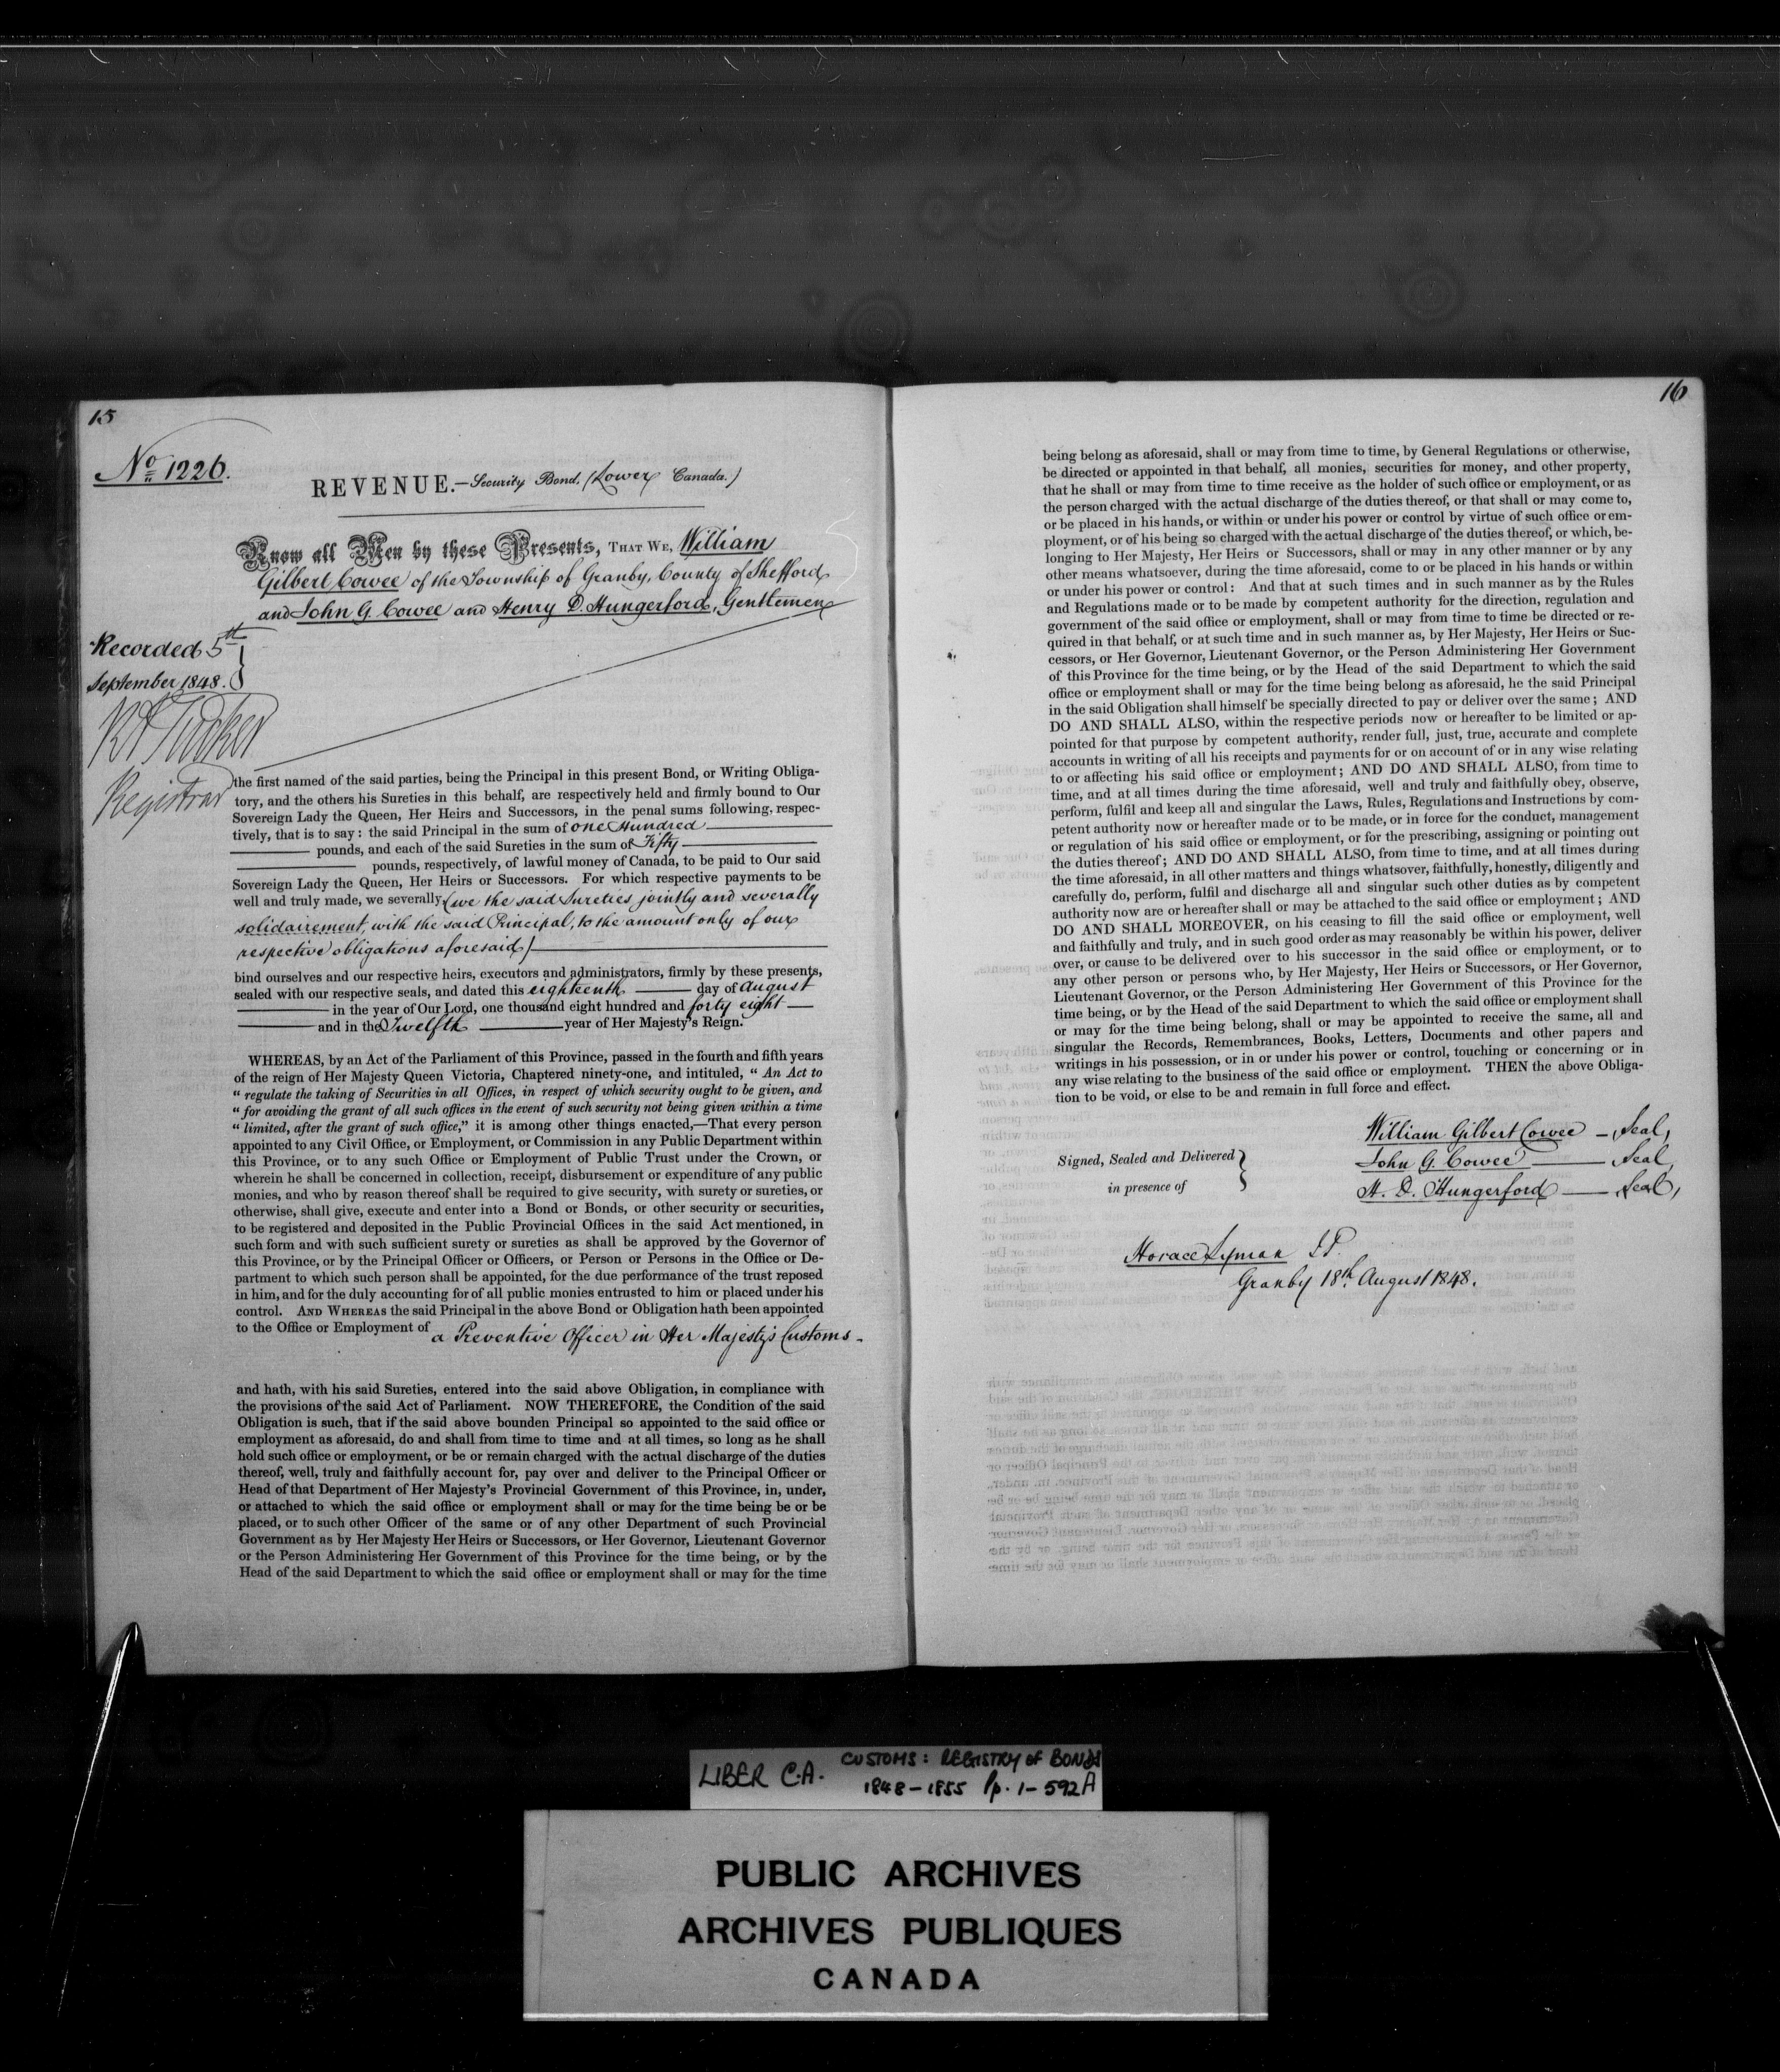 15
No 1226.
REVENUE.—Security Bond. (Lower Canada.)
Know all Men by these Presents, THAT WE, William
Gilbert Cowee of the Township of Granby, County of Shefford
and John G. Cowee and Henry D. Hungerford, Gentlemen
Recorded 5th
September 1848.
R A Tucker
Registrar
the first named of the said parties, being the Principal in this present Bond, or Writing Obliga-
tory, and the others his Sureties in this behalf, are respectively held and firmly bound to Our
Sovereign Lady the Queen, Her Heirs and Successors, in the penal sums following, respec-
tively, that is to say: the said Principal in the sum of one Hundred
pounds, and each of the said Sureties in the sum of Fifty
pounds, respectively, of lawful money of Canada, to be paid to Our said
Sovereign Lady the Queen, Her Heirs or Successors. For which respective payments to be
well and truly made, we severally, (we the said Sureties jointly and severally
solidairement, with the said Principal, to the amount only of our
respective obligations aforesaid)
bind ourselves and our respective heirs, executors and administrators, firmly by these presents,
sealed with our respective seals, and dated this eighteenth day of August
in the year of Our Lord, one thousand eight hundred and forty eight
and in the Twelfth year of Her Majesty's Reign.
WHEREAS, by an Act of the Parliament of this Province, passed in the fourth and fifth years
of the reign of Her Majesty Queen Victoria, Chaptered ninety-one, and intituled, “ An Act to
“ regulate the taking of Securities in all Offices, in respect of which security ought to be given, and
“ for avoiding the grant of all such offices in the event of such security not being given within a time
“ limited, after the grant of such office,” it is among other things enacted,—That every person
appointed to any Civil Office, or Employment, or Commission in any Public Department within
this Province, or to any such Office or Employment of Public Trust under the Crown, or
wherein he shall be concerned in collection, receipt, disbursement or expenditure of any public
monies, and who by reason thereof shall be required to give security, with surety or sureties, or
otherwise, shall give, execute and enter into a Bond or Bonds, or other security or securities,
to be registered and deposited in the Public Provincial Offices in the said Act mentioned, in
such form and with such sufficient surety or sureties as shall be approved by the Governor of
this Province, or by the Principal Officer or Officers, or Person or Persons in the Office or De-
partment to which such person shall be appointed, for the due performance of the trust reposed
in him, and for the duly accounting for of all public monies entrusted to him or placed under his
control. AND WHEREAS the said Principal in the above Bond or Obligation hath been appointed
to the Office or Employment of a Preventive Officer in Her Majesty's Customs -
and hath, with his said Sureties, entered into the said above Obligation, in compliance with
the provisions of the said Act of Parliament. NOW THEREFORE, the Condition of the said
Obligation is such, that if the said above bounden Principal so appointed to the said office or
employment as aforesaid, do and shall from time to time and at all times, so long as he shall
hold such office or employment, or be or remain charged with the actual discharge of the duties
thereof, well, truly and faithfully account for, pay over and deliver to the Principal Officer or
Head of that Department of Her Majesty's Provincial Government of this Province, in, under,
or attached to which the said office or employment shall or may for the time being be or be
placed, or to such other Officer of the same or of any other Department of such Provincial
Government as by Her Majesty Her Heirs or Successors, or Her Governor, Lieutenant Governor
or the Person Administering Her Government of this Province for the time being, or by the
Head of the said Department to which the said office or employment shall or may for the time
16
being belong as aforesaid, shall or may from time to time, by General Regulations or otherwise,
be directed or appointed in that behalf, all monies, securities for money, and other property,
that he shall or may from time to time receive as the holder of such office or employment, or as
the person charged with the actual discharge of the duties thereof, or that shall or may come to,
or be placed in his hands, or within or under his power or control by virtue of such office or em-
ployment, or of his being so charged with the actual discharge of the duties thereof, or which, be-
longing to Her Majesty, Her Heirs or Successors, shall or may in any other manner or by any
other means whatsoever, during the time aforesaid, come to or be placed in his hands or within
or under his power or control: And that at such times and in such manner as by the Rules
and Regulations made or to be made by competent authority for the direction, regulation and
government of the said office or employment, shall or may from time to time be directed or re-
quired in that behalf, or at such time and in such manner as, by Her Majesty, Her Heirs or Suc-
cessors, or Her Governor, Lieutenant Governor, or the Person Administering Her Government
of this Province for the time being, or by the Head of the said Department to which the said
office or employment shall or may for the time being belong as aforesaid, he the said Principal
in the said Obligation shall himself be specially directed to pay or deliver over the same; AND
DO AND SHALL ALSO, within the respective periods now or hereafter to be limited or ap-
pointed for that purpose by competent authority, render full, just, true, accurate and complete
accounts in writing of all his receipts and payments for or on account of or in any wise relating
to or affecting his said office or employment; AND DO AND SHALL ALSO, from time to
time, and at all times during the time aforesaid, well and truly and faithfully obey, observe,
perform, fulfil and keep all and singular the Laws, Rules, Regulations and Instructions by com-
petent authority now or hereafter made or to be made, or in force for the conduct, management
or regulation of his said office or employment, or for the prescribing, assigning or pointing out
the duties thereof; AND DO AND SHALL ALSO, from time to time, and at all times during
the time aforesaid, in all other matters and things whatsover, faithfully, honestly, diligently and
carefully do, perform, fulfil and discharge all and singular such other duties as by competent
authority now are or hereafter shall or may be attached to the said office or employment; AND
DO AND SHALL MOREOVER, on his ceasing to fill the said office or employment, well
and faithfully and truly, and in such good order as may reasonably be within his power, deliver
over, or cause to be delivered over to his successor in the said office or employment, or to
any other person or persons who, by Her Majesty, Her Heirs or Successors, or Her Governor,
Lieutenant Governor, or the Person Administering Her Government of this Province for the
time being, or by the Head of the said Department to which the said office or employment shall
or may for the time being belong, shall or may be appointed to receive the same, all and
singular the Records, Remembrances, Books, Letters, Documents and other papers and
writings in his possession, or in or under his power or control, touching or concerning or in
any wise relating to the business of the said office or employment. THEN the above Obliga-
tion to be void, or else to be and remain in full force and effect.
William Gilbert Cowee - Seal,
Signed, Sealed and Delivered
John G. Cowee Seal,
in presence of
H. D. Hungerford Seal,
Horace Lyman J.P.
Granby 18th August 1848.
LIBER C.A. CUSTOMS: REGISTRY OF BONDS
1848-1855 pp. 1-592A
PUBLIC ARCHIVES
ARCHIVES PUBLIQUES
CANADA